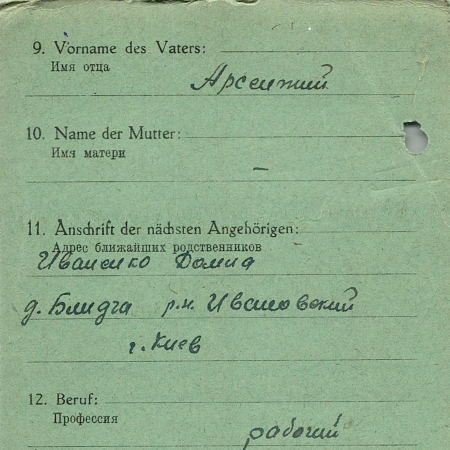 9. Vorname des Vaters:
Имя отца
Арсентий
10. Name der Mutter:
Имя матери
—
11. Anschrift der nächsten Angehörigen:
Адрес ближайших родственников
Иваненко Домна
д. Блидча р.н. Ивановский
г. Киев
12. Beruf:
Профессия
рабочий